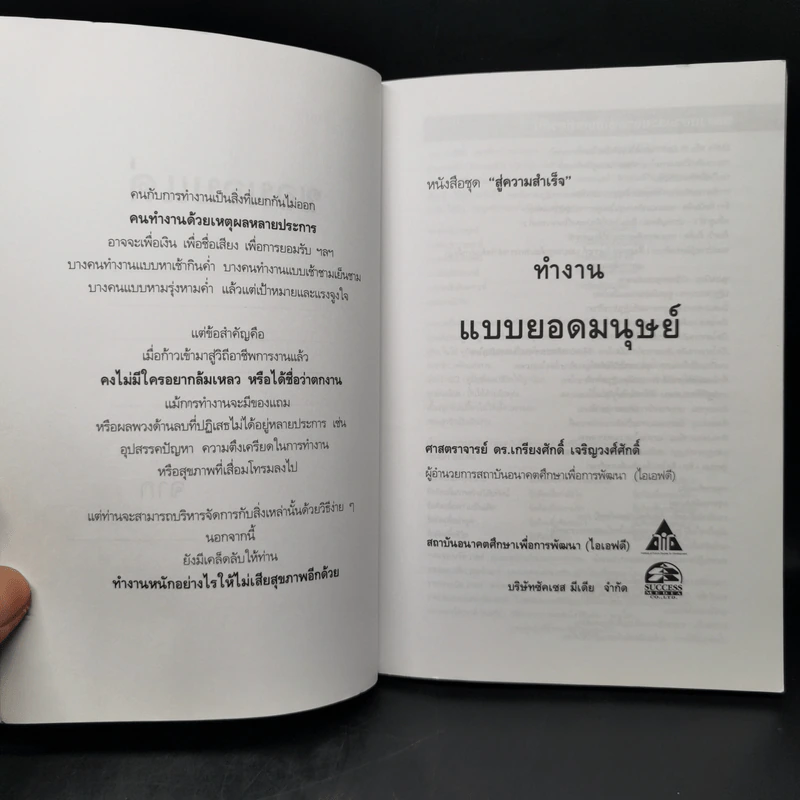 คนกับการทำงานเป็นสิ่งที่แยกกันไม่ออก
คนทำงานด้วยเหตุผลหลายประการ
อาจจะเพื่อเงิน เพื่อชื่อเสียง เพื่อการยอมรับ ฯลฯ
บางคนทำงานแบบหาเช้ากินค่ำ บางคนทำงานแบบเช้าชามเย็นชาม
บางคนแบบหามรุ่งหามค่ำ แล้วแต่เป้าหมายและแรงจูงใจ
แต่ข้อสำคัญคือ
เมื่อก้าวเข้ามาสู่วิถีอาชีพการงานแล้ว
คงไม่มีใครอยากล้มเหลว หรือได้ชื่อว่าตกงาน
แม้การทำงานจะมีของแถม
หรือผลพวงด้านลบที่ปฏิเสธไม่ได้อยู่หลายประการ เช่น
อุปสรรคปัญหา ความตึงเครียดในการทำงาน
หรือสุขภาพที่เสื่อมโทรมลงไป
แต่ท่านจะสามารถบริหารจัดการกับสิ่งเหล่านั้นด้วยวิธีง่าย ๆ
นอกจากนี้
ยังมีเคล็ดลับให้ท่าน
ทำงานหนักอย่างไรให้ไม่เสียสุขภาพอีกด้วย
หนังสือชุด "สู่ความสำเร็จ"
ทำงาน
แบบยอดมนุษย์
ศาสตราจารย์ ดร.เกรียงศักดิ์ เจริญวงศ์ศักดิ์
ผู้อำนวยการสถาบันอนาคตศึกษาเพื่อการพัฒนา (ไอเอฟดี)
สถาบันอนาคตศึกษาเพื่อการพัฒนา (ไอเอฟดี)
บริษัทซัคเซส มีเดีย จำกัด
SUCCESS
MEDIA
CO.,LTD.